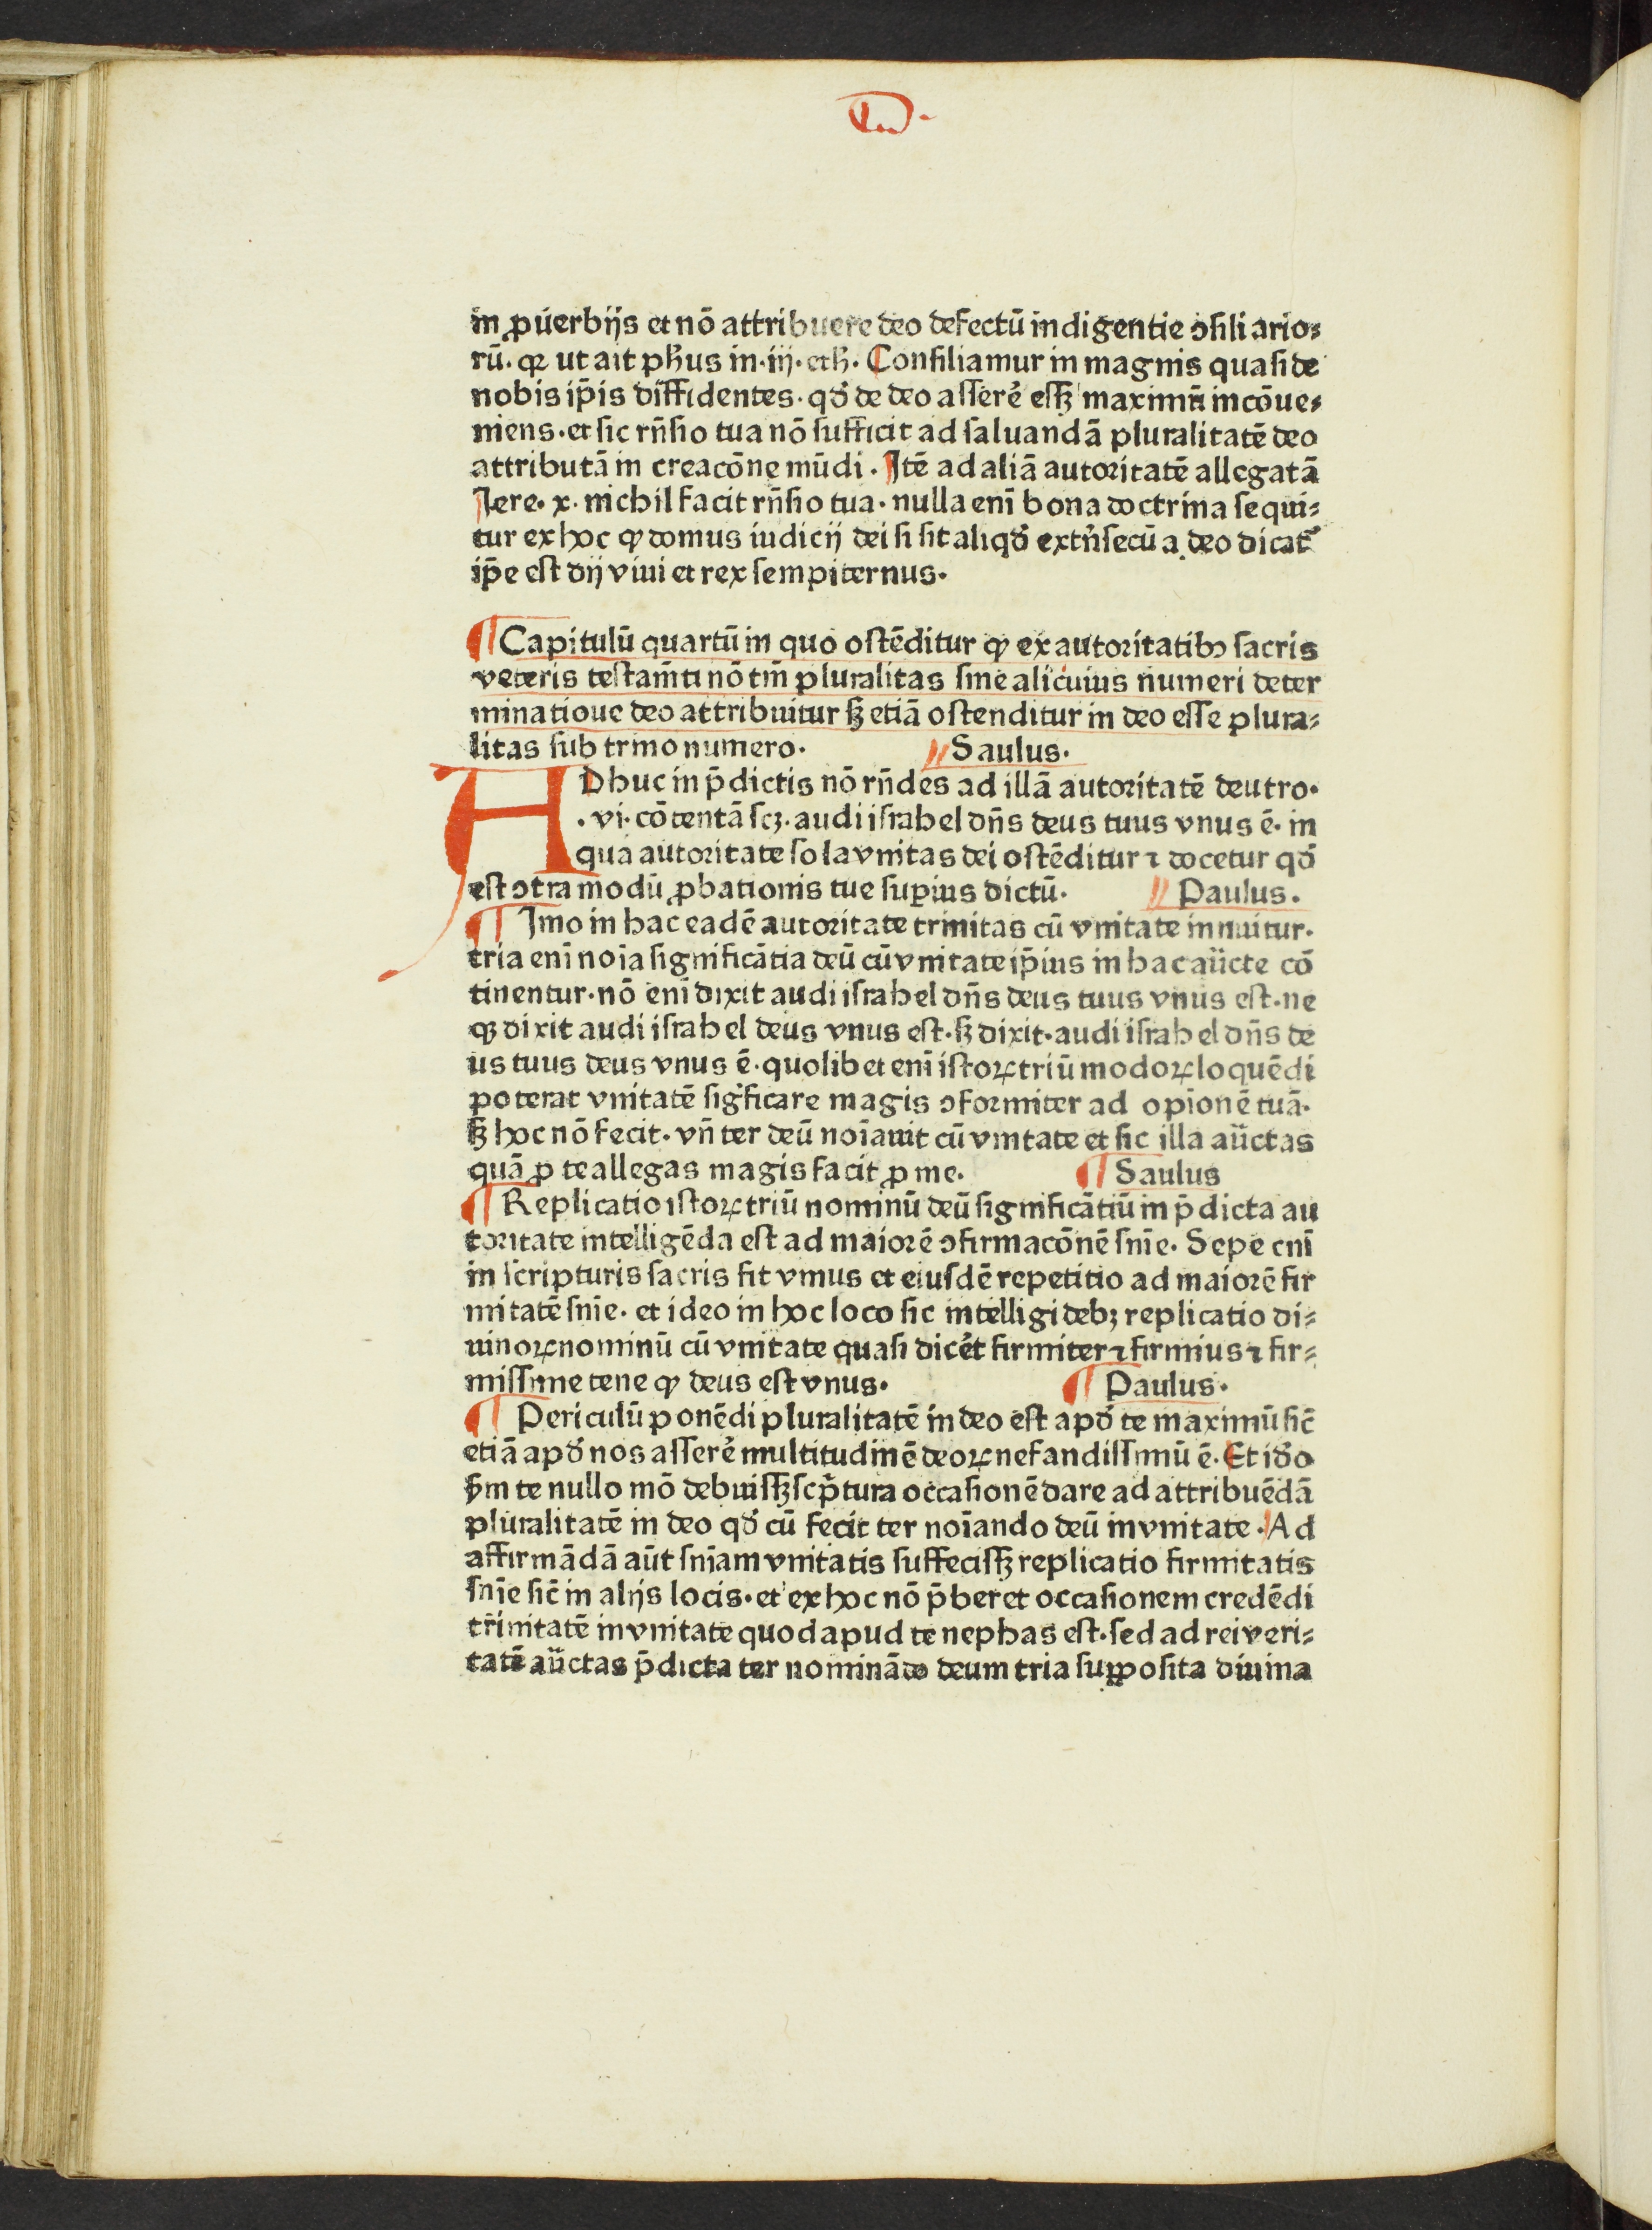 in ꝓuerbijs et nō attribuere deo defectū indigentie ↄſiliario⸗
rū. qꝛ ut ait pħus in .iij. eth. Conſiliamur in magnis quaſi de
nobis ip̄is diffidentes. qđ de deo aſſerē eſſꝫ maximū incōue⸗
niens. et ſic rn̄ſio tua nō ſufficit ad ſaluandā pluralitatē deo
attributā in creacōne mūdi. Itē ad aliā autoritatē allegatā
Iere. x. nichil facit rn̄ſio tua. nulla enī bona doctrina ſequi⸗
tur ex hoc ꝙ domus iudicij dei ſi ſit aliqđ extn̄ſecū a deo dicat᷑
ip̄e eſt dij viui et rex ſempiternus.
¶ Capitulū quartū in quo oſtēditur ꝙ ex autoritatibꝫ ſacris
veteris teſtam̄ti nō tm̄ pluralitas ſine alicuius numeri deter
minatioue deo attribuitur ſꝫ etiā oſtenditur in deo eſſe plura⸗
litas ſub trino numero. // Saulus.
ADhuc in p̄dictis nō rn̄des ad illā autoritatē deutro.
.vi. cōtentā ſcꝫ. audi iſrahel dn̄s deus tuus vnus ē. in
qua autoritate ſola vnitas dei oſtēditur ⁊ docetur qđ
eſt ↄtra modū ꝓbationis tue ſuꝑius dictū. // Paulus.
¶ Imo in hac eadē autoritate trinitas cū vnitate innuitur.
tria enī noīa ſignificātia deū cū vnitate ip̄ius in hac aūcte cō
tinentur. nō enī dixit audi iſrahel dn̄s deus tuus vnus eſt. ne
qꝫ dixit audi iſrahel deus vnus eſt. ſꝫ dixit. audi iſrahel dn̄s de
us tuus deus vnus ē. quolibet enī iſtoꝝ triū modoꝝ loquēdi
poterat vnitatē ſig̓ficare magis ↄformiter ad opīonē tuā.
ſꝫ hoc nō fecit. vn̄ ter deū noīauit cū vnitate et ſic illa aūctas
quā ꝓ te allegas magis facit ꝓ me. ¶ Saulus
¶ Replicatio iſtoꝝ triū nominū deū ſignificātiū in p̄dicta au
toritate intelligēda eſt ad maiorē ↄfirmacōnē ſnīe. Sepe enī
in ſcripturis ſacris fit vnius et eiuſdē repetitio ad maiorē fir
mitatē ſnīe. et ideo in hoc loco ſic intelligi debꝫ replicatio di⸗
uinoꝝ nominū cū vnitate quaſi dicēt firmiter ⁊ firmius ⁊ fir⸗
miſſime tene ꝙ deus eſt vnus. ¶ Paulus.
¶ Periculū ponēdi pluralitatē in deo eſt apđ te maximū ſic̄
etiā apđ nos aſſerē multitudinē deoꝝ nefandiſſimū ē. Et iđo
ẜm te nullo mō debuiſſꝫ ſcp̄tura occaſionē dare ad attribuēdā
pluralitatē in deo qđ cū fecit ter noīando deū in vnitate. Ad
affirmādā aūt ſnīam vnitatis ſuffeciſſꝫ replicatio firmitatis
ſnīe ſic̄ in alijs locis. et ex hoc nō p̄beret occaſionem credēdi
tr̄initatē in vnitate quod apud te nephas eſt. ſed ad rei veri⸗
tatē aūctas p̄dicta ter nominādo deum tria ſuppoſita diuina